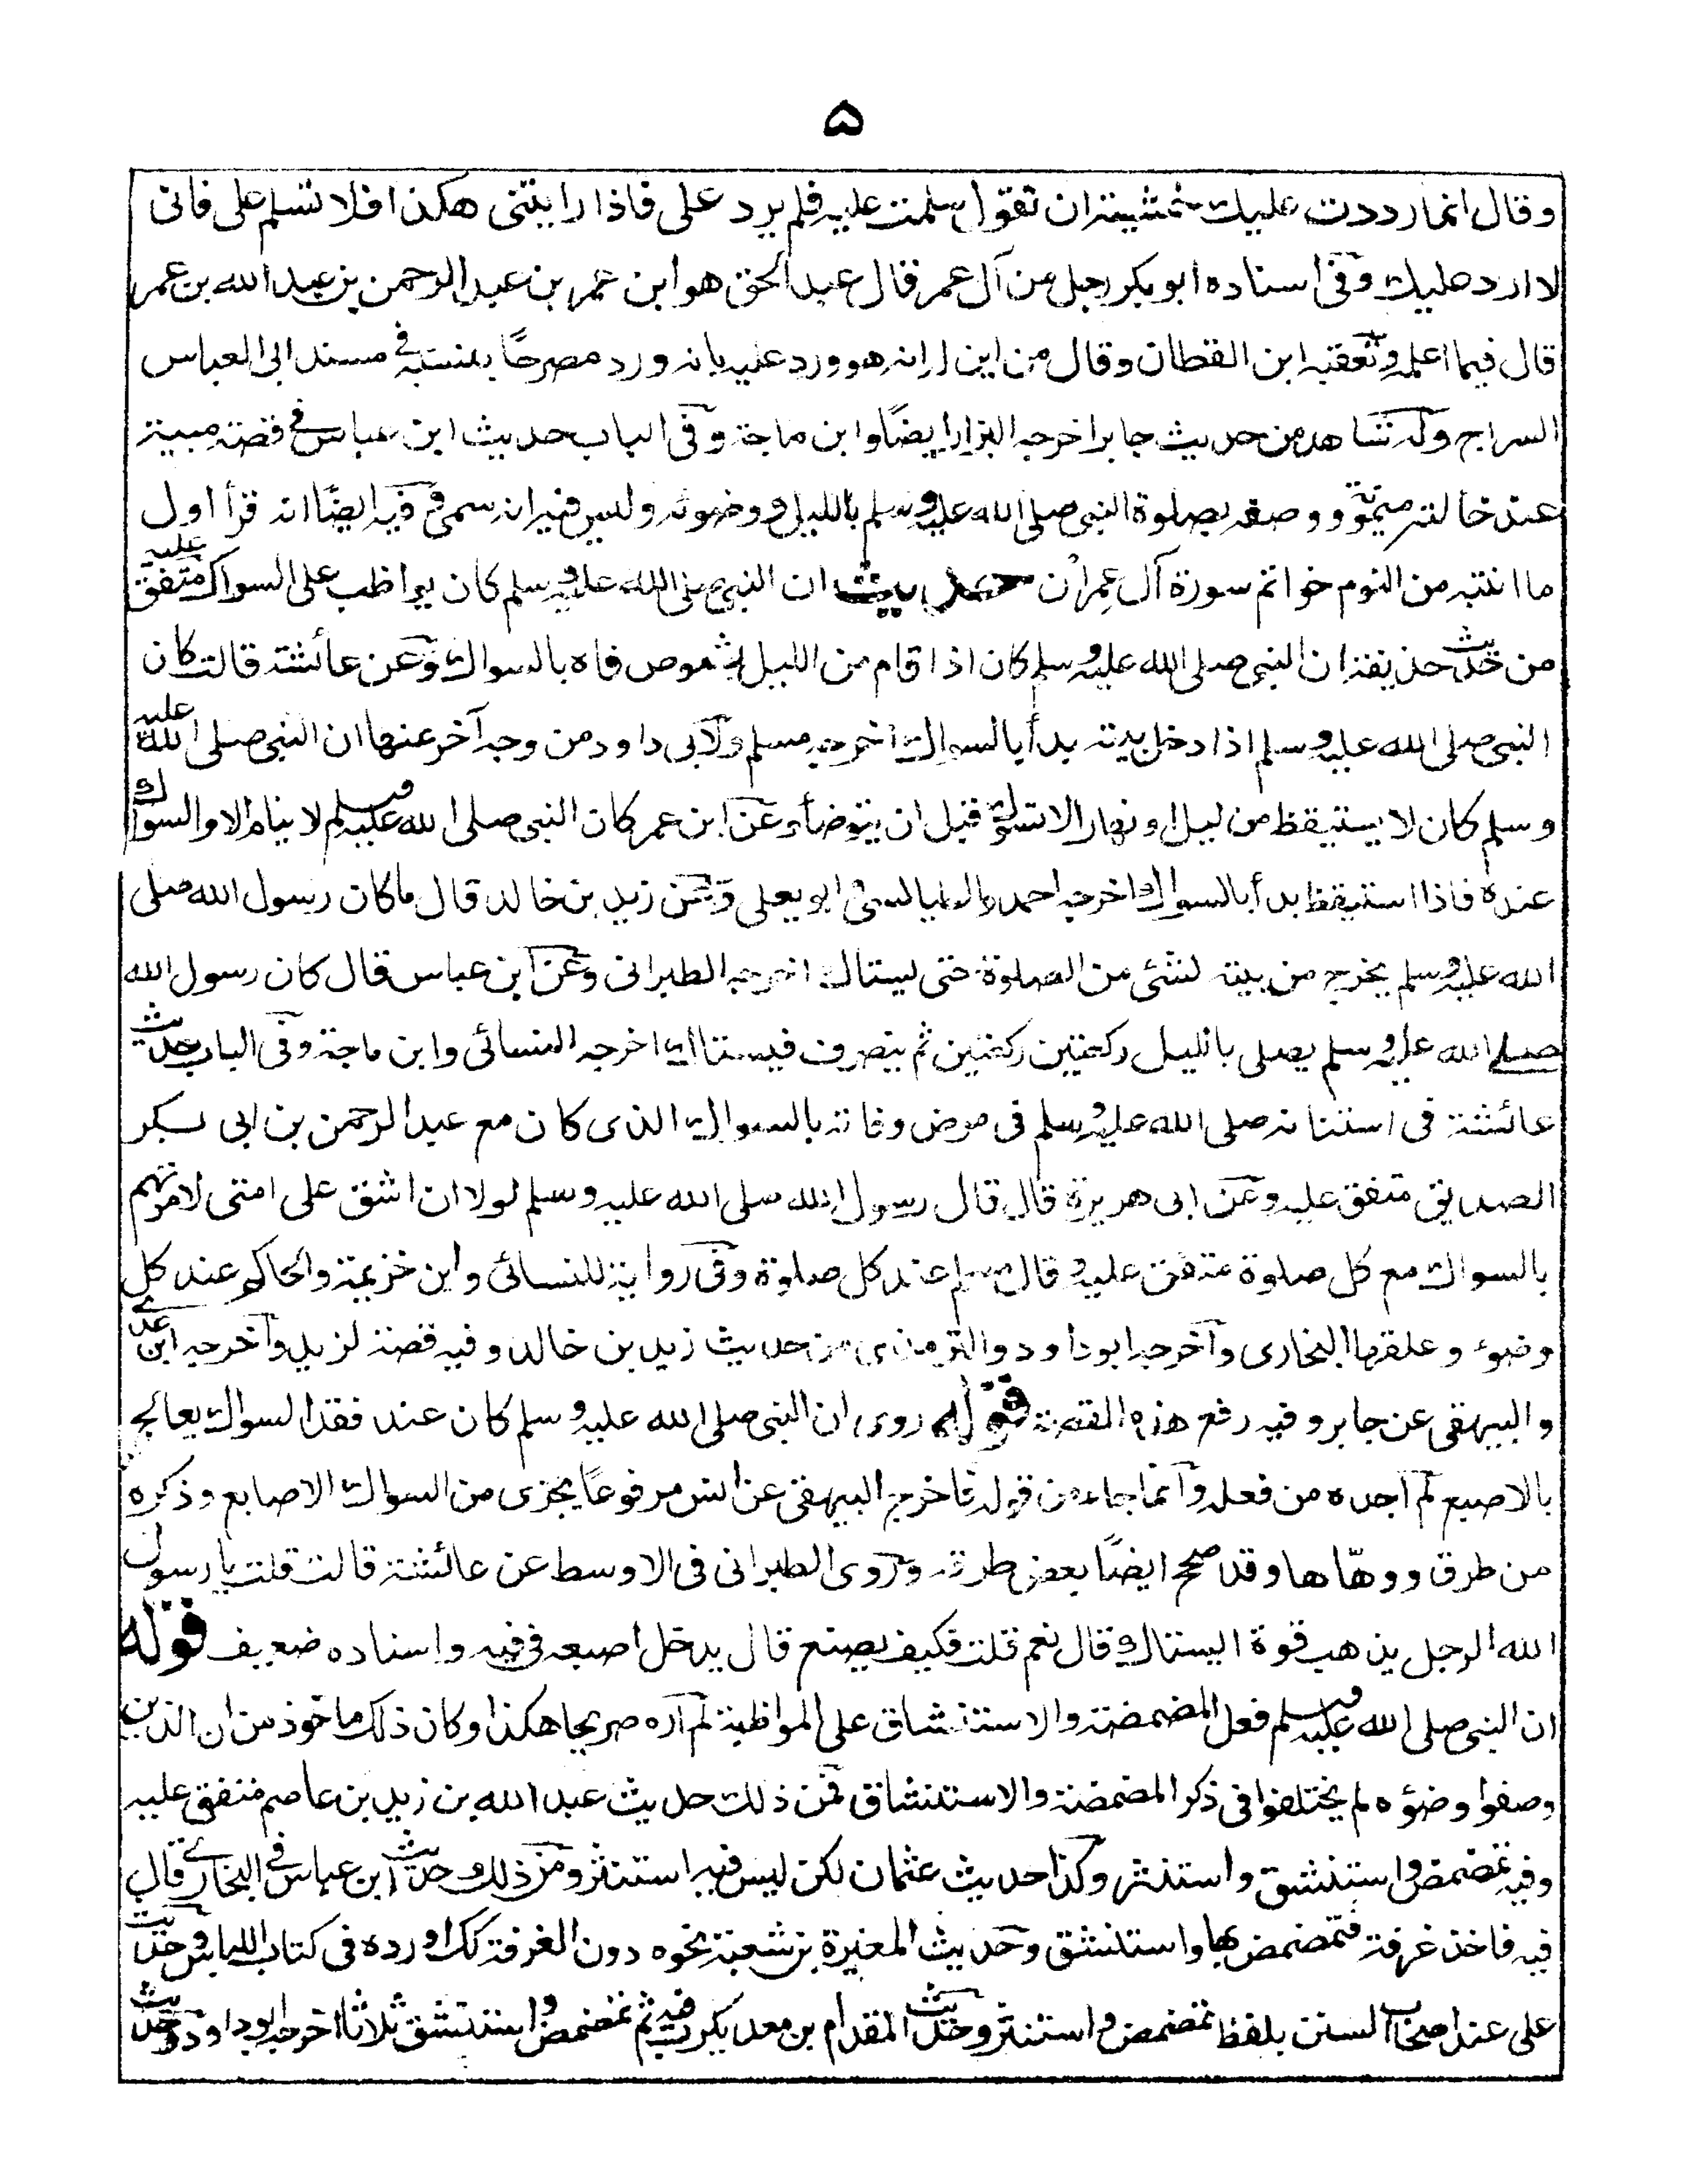 ۵
وقال انما رددت عليك خشية ان تقول سلمت عليه فلم يرد على فاذا رايتنى هكذا فلا تسلم على فانى
لا ارد عليك وفى اسناده ابو بكر رجل من آل عمر قال عبد الحق هو ابن عمر بن عبد الرحمن بن عبد الله بن عمر
قال فيما اعلم وتعقبه ابن القطان وقال من اين له انه هو ورد عليه بانه ورد مصرحًا بنسبته فى مسند ابى العباس
السراج وله شاهد من حديث جابر اخرجه البزار ايضًا وابن ماجة وفى الباب حديث ابن عباس فى قصة مبيته
عند خالته ميمونة ووصفه بصلوة النبى صلى الله عليه وسلم بالليل ووضوئه وليس فيه انه سمى وفيه ايضًا انه قرأ اول
ما انتبه من النوم خواتم سورة آل عمران حديث ان النبى صلى الله عليه وسلم كان يواظب على السواك متفق عليه
من حديث حذيفة ان النبى صلى الله عليه وسلم كان اذا قام من الليل يشوص فاه بالسواك وعن عائشة قالت كان
النبى صلى الله عليه وسلم اذا دخل بيته بدأ بالسواك اخرجه مسلم ولابى داود من وجه آخر عنها ان النبى صلى الله عليه
وسلم كان لا يستيقظ من ليل او نهار الا تسوك قبل ان يتوضأ وعن ابن عمر كان النبى صلى الله عليه وسلم لا ينام الا والسواك
عنده فاذا استيقظ بدأ بالسواك اخرجه احمد والطيالسى وابو يعلى وعن زيد بن خالد قال ما كان رسول الله صلى
الله عليه وسلم يخرج من بيته لشئ من الصلوة حتى يستاك اخرجه الطبرانى وعن ابن عباس قال كان رسول الله
صلى الله عليه وسلم يصلى بالليل ركعتين ركعتين ثم ينصرف فيستاك اخرجه النسائى وابن ماجة وفى الباب حديث
عائشة فى استنانه صلى الله عليه وسلم فى مرض وفاته بالسواك الذى كان مع عبد الرحمن بن ابى بكر
الصديق متفق عليه وعن ابى هريرة قال قال رسول الله صلى الله عليه وسلم لولا ان اشق على امتى لامرتهم
بالسواك مع كل صلوة متفق عليه وقال مسلم عند كل صلوة وفى رواية للنسائى وابن خزيمة والحاكم عند كل
وضوء وعلقها البخارى وآخرجه ابو داود والترمذى من حديث زيد بن خالد وفيه قصة لزيد وآخرجه ابن عدى
والبيهقى عن جابر وفيه رفع هذه القصة قوله روى ان النبى صلى الله عليه وسلم كان عند فقد السواك يعالج
بالاصبع لم اجده من فعله وانما جاء من قوله فاخرج البيهقى عن انس مرفوعًا يجزى من السواك الاصابع وذكره
من طرق ووهّاها وقد صحح ايضًا بعض طرقه وروى الطبرانى فى الاوسط عن عائشة قالت قلت يا رسول
الله الرجل يذهب فوه ايستاك قال نعم قلت فكيف يصنع قال يدخل اصبعه فى فيه واسناده ضعيف قوله
ان النبى صلى الله عليه وسلم فعل المضمضة والاستنشاق على المواظبة لم آره صريحا هكذا وكان ذلك ماخوذ من ان الذين
وصفوا وضوءه لم يختلفوا فى ذكر المضمضة والاستنشاق فمن ذلك حديث عبد الله بن زيد بن عاصم متفق عليه
وفيه تمضمض واستنشق واستنثر وكذا حديث عثمان لكن ليس فيه استنثر ومن ذلك حديث ابن عباس فى البخارى قال
فيه فاخذ غرفة فتمضمض بها واستنشق وحديث المغيرة بن شعبة نحوه دون الغرفة كك اورده فى كتاب اللباس وحديث
على عند اصحاب السنن بلفظ تمضمض واستنثر وحديث المقدام بن معد يكرب فيه ثم تمضمض واستنشق ثلاثا اخرجه ابو داود وحديث